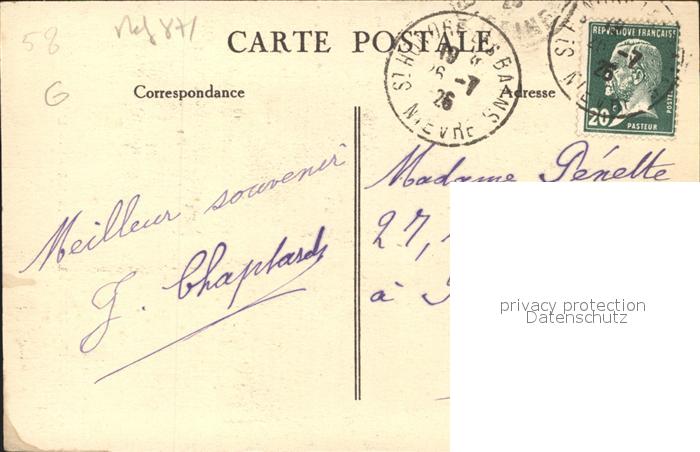 58
CARTE POSTALE
G
Correspondance
Adresse
ST HONORE LES BAINS
19
26 -7
26
NIEVRE
REPUBLIQUE FRANÇAISE
20
PASTEUR
Meilleur souvenir
J. Chaptard
Madame Pénette
27,
à
privacy protection
Datenschutz